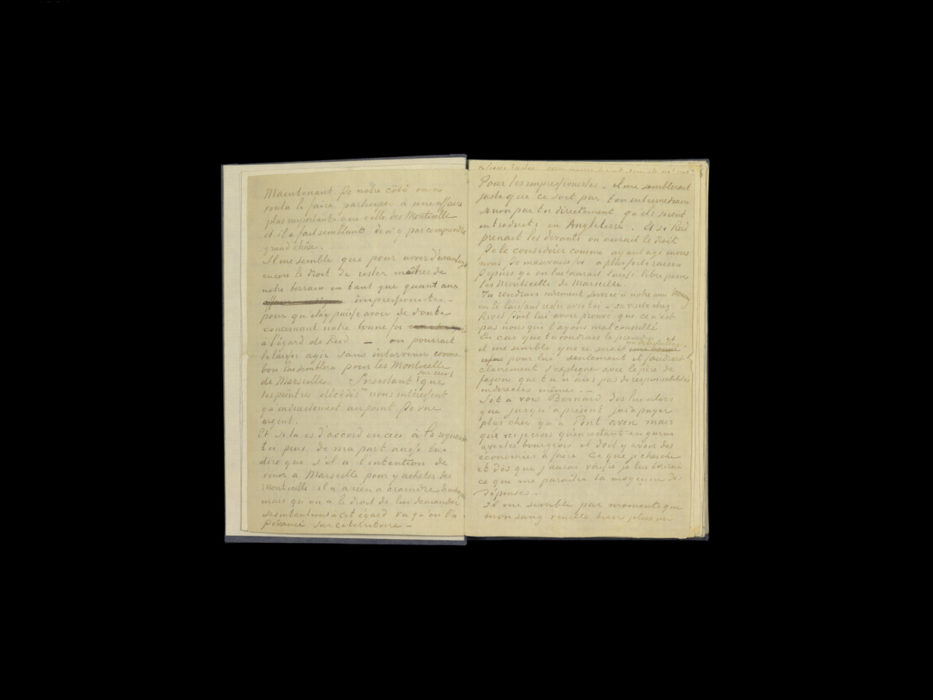 Maintenant de notre côté on a
voulu le faire participer à une affaire
plus importante que celle des Monticelli
et il a fait semblant de n'y pas comprendre
grand chose.
Il me semble que pour avoir davantage
encore le droit de rester maîtres de
notre terrain en tant que quant aux
impressionistes —
pour qu'il n'y puisse avoir de doute
concernant notre bonne foi
à l'égard de Reid — on pourrait
le laisser agir sans intervenir comme
bon lui semblera pour les Monticelli
de Marseille. Insistant sur ceci que
les peintres décédés nous intéressent
qu'indirectement au point de vue
argent.
Et si tu es d'accord en ceci
tu peux de ma part aussi lui
dire que s'il a l'intention de
venir à Marseille pour y acheter des
Monticelli il n'a rien à craindre
mais qu'on a le droit de lui demander
ses intentions à cet égard vu qu'on l'a
devancé sur ce territoire —
Pour les impressionistes — il me semblerait
juste que ce soit par ton intermédiaire
sinon par toi directement qu'ils soient
introduits en Angleterre. Et si Reid
prenait les devants on aurait le droit
de le considérer comme ayant agi envers
nous de mauvaise foi à plus forte raison
depuis qu'on lui aurait laissé libre pour
les Monticelli de Marseille.
Tu rendrais sûrement service à notre ami
en le laissant rester avec toi — sa visite chez
Rivet doit lui avoir prouvé que ce n'est
pas nous qui l'ayons mal conseillé.
En cas que tu voudrais le prendre
il me semble que ce serait
pour lui seulement il faudrait
clairement s'expliquer avec le père de
façon que tu n'aies pas de responsabilités
indirectes même. —
Si tu vois Bernard dis lui alors
que jusqu'à présent j'ai à payer
plus cher qu'à Pont aven mais
que je crois qu'en restant en garni
avec les bourgeois il doit y avoir des
économies à faire ce que je cherche
et dès que j'aurai vérifié je lui écrirai
ce que me paraîtra la moyenne des
dépenses —
Il me semble par moments que
mon sang veuille bien plus ou